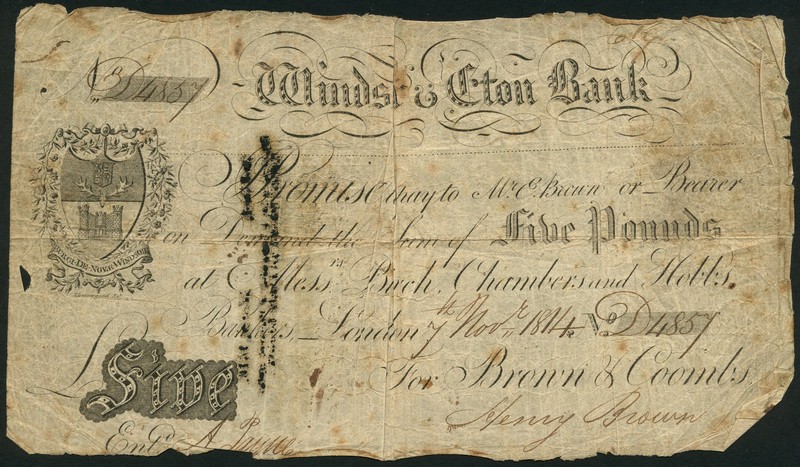 No D4857
Windsr & Eton Bank
Promise to pay to Mr. C. Brown or Bearer
on Demand the Sum of Five Pounds
at Messrs Birch, Chambers and Hobbs,
Bankers London 7th Novr 1814 No D4857
£ Five
For Brown & Coombs.
Henry Brown
Entd